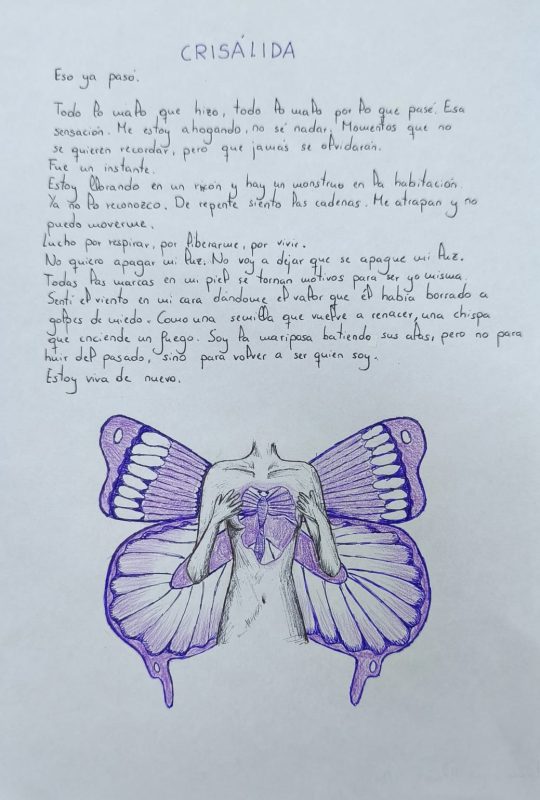 CRISÁLIDA
Eso ya pasó.
Todo lo malo que hizo, todo lo malo por lo que pasé. Esa
sensación. Me estoy ahogando, no sé nadar. Momentos que no
se quieren recordar, pero que jamás se olvidarán.
Fue un instante.
Estoy llorando en un rincón y hay un monstruo en la habitación.
Ya no lo reconozco. De repente siento las cadenas. Me atrapan y no
puedo moverme.
Lucho por respirar, por liberarme, por vivir.
No quiero apagar mi luz. No voy a dejar que se apague mi luz.
Todas las marcas en mi piel se tornan motivos para ser yo misma.
Sentí el viento en mi cara dándome el valor que él había borrado a
golpes de miedo. Como una semilla que vuelve a renacer, una chispa
que enciende un fuego. Soy la mariposa batiendo sus alas, pero no para
huir del pasado, sino para volver a ser quien soy.
Estoy viva de nuevo.